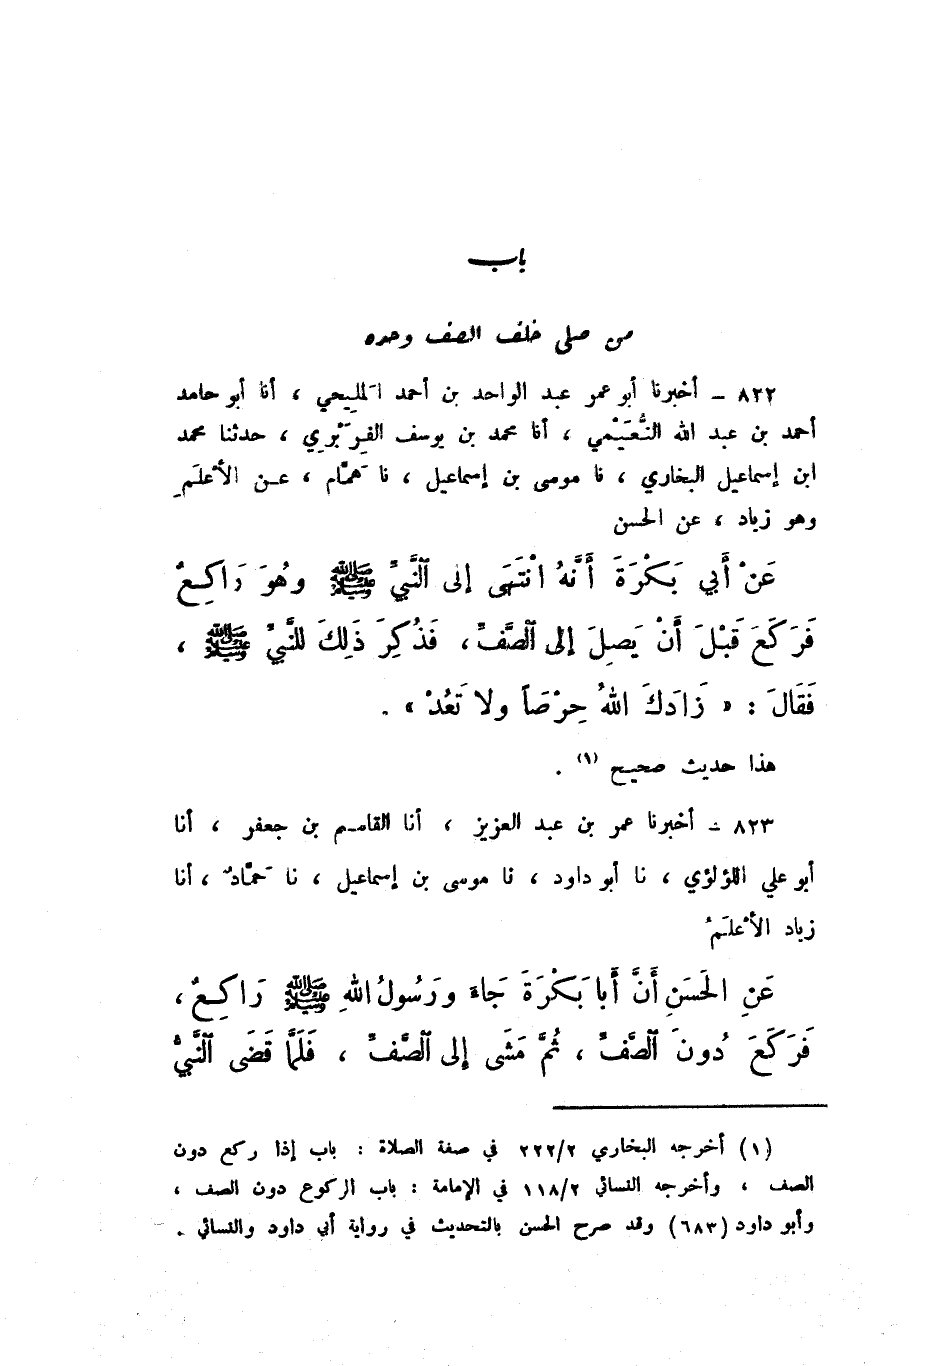 باب
من صلى خلف الصف وحده
٨٢٢ – أخبرنا أبو عمر عبد الواحد بن أحمد الَمليحي ، أنا أبو حامد
أحمد بن عبد الله النُّعَيْمي ، أنا محمد بن يوسف الفِرَبْرِي ، حدثنا محمد
ابن إسماعيل البخاري ، نا موسى بن إسماعيل ، نا هَمَّام ، عـن الأعْلَمِ
وهو زياد ، عن الحسن
عَنْ أَبي بَكْرَةَ أَنَّهُ انْتَهَى إلى ٱلنَّبيِّ ﷺ وهُوَ رَاكِعٌ
فَرَكَعَ قَبْلَ أَنْ يَصِلَ إلى ٱلصَّفِّ ، فَذُكِرَ ذَلِكَ للنَّبيِّ ﷺ ،
فَقَالَ : « زَادَكَ اللهُ حِرْصَاً ولا تَعُدْ » .
هذا حديث صحيح (١) .
٨٢٣ – أخبرنا عمر بن عبد العزيز ، أنا القاسم بن جعفر ، أنا
أبو علي اللؤلؤي ، نا أبو داود ، نا موسى بن إسماعيل ، نا حَمَّادٌ ، أنا
زياد الأعْلَمُ
عَنِ الحَسَنِ أَنَّ أَبا بَكْرَةَ جَاءَ ورَسُولُ اللهِ ﷺ رَاكِعٌ ،
فَرَكَعَ دُونَ ٱلصَّفِّ ، ثُمَّ مَشَى إلى ٱلصَّفِّ ، فَلَمَّا قَضَى ٱلنَّبيُّ
(١) أخرجه البخاري ٢٢٢/٢ في صفة الصلاة : باب إذا ركع دون
الصف ، وأخرجه النسائي ١١٨/٢ في الإمامة : باب الركوع دون الصف ،
وأبو داود (٦٨٣) وقد صرح الحسن بالتحديث في رواية أبي داود والنسائي .